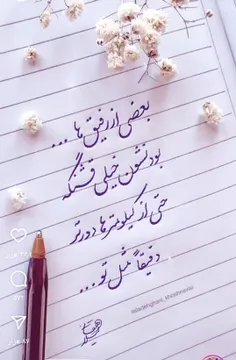 بعضی از رفیق ها ...
بودنشون خیلی قشنگه
حتی از کیلومترها دورتر
دقیقاً مثل تو ...